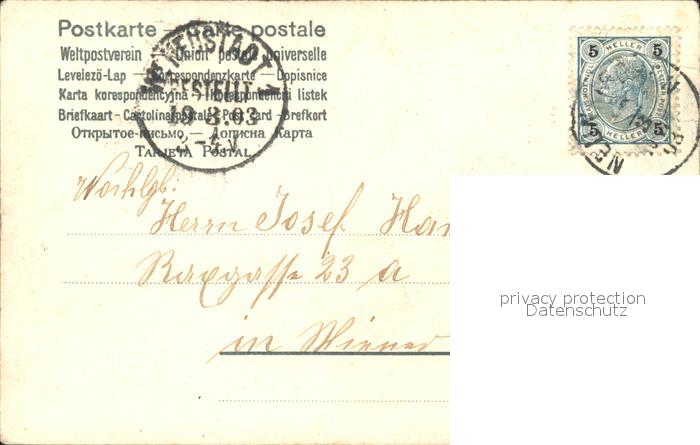 Postkarte — Carte postale
Weltpostverein — Union postale universelle
Levelező-Lap — Correspondenzkarte — Dopisnice
Karta korespondencyjna — Korespondencni listek
Briefkaart — Cartolina postale — Post Card — Brefkort
Открытое-письмо — Дописна Карта
Tarjeta Postal
NEUSTADT 1
BESTELLT
19.3.03
5 HELLER 5
5 HELLER 5
Herrn Josef
Raxgasse 23 a
in Wiener
privacy protection
Datenschutz